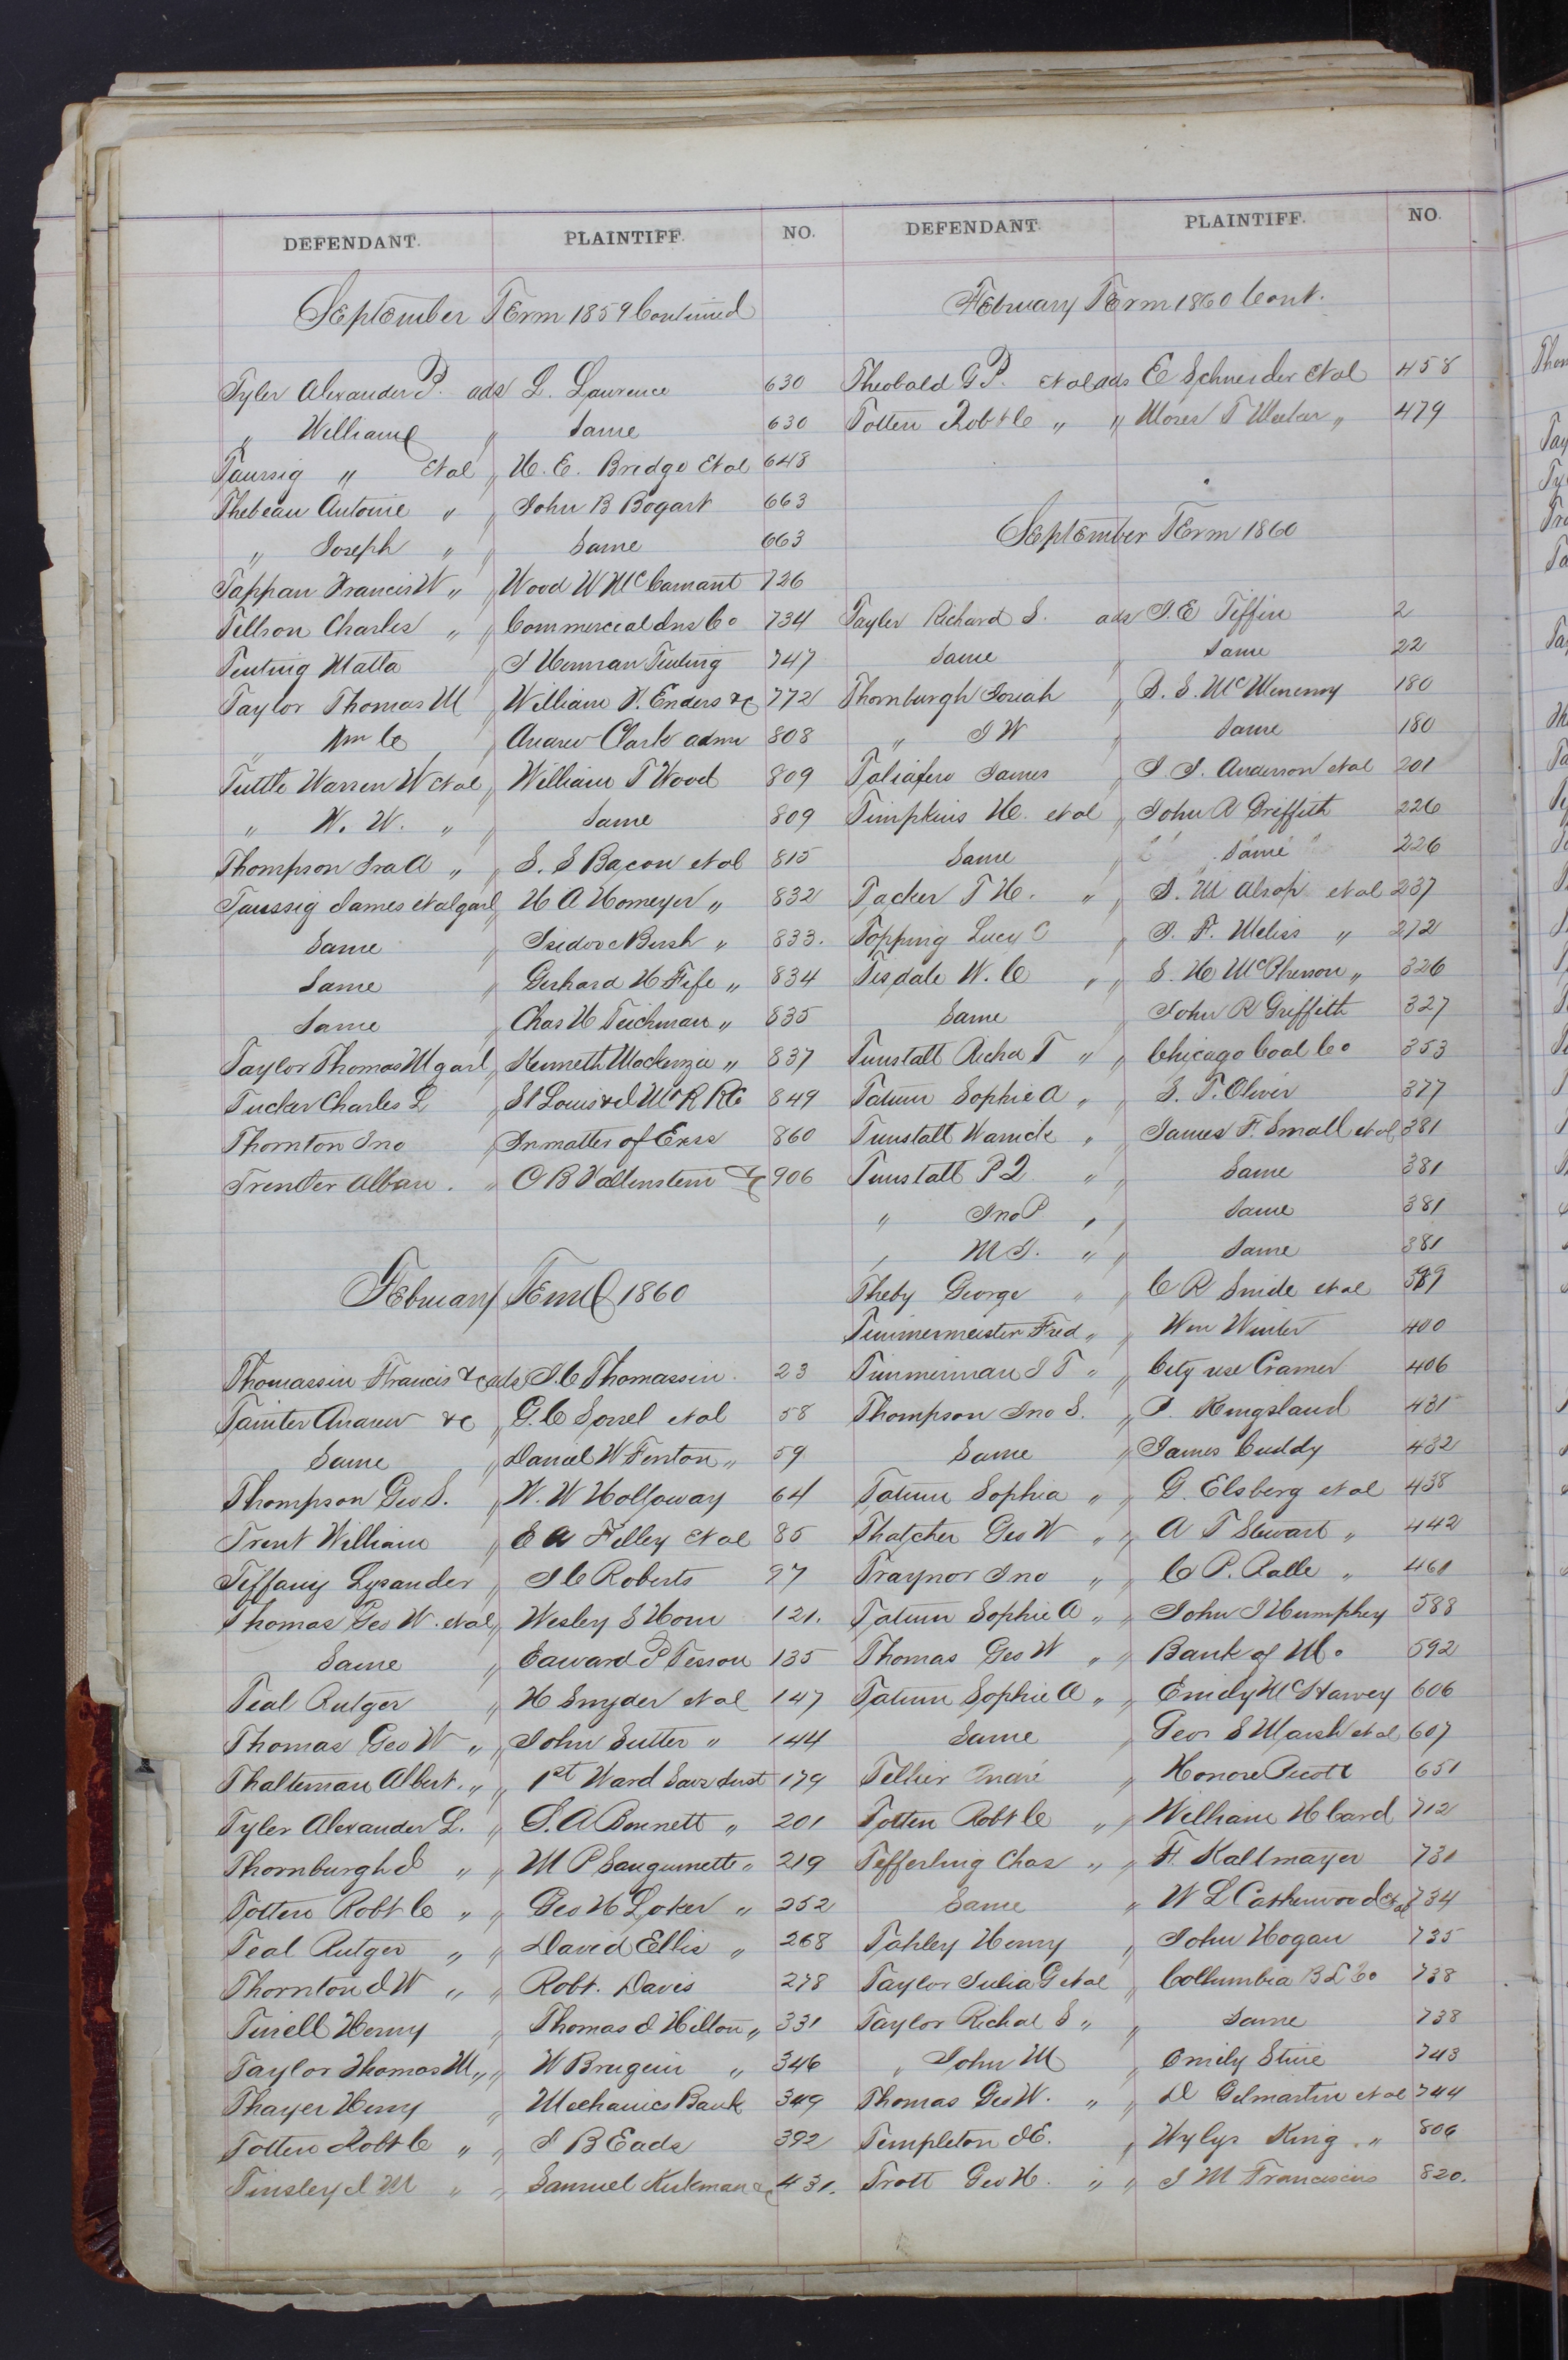 DEFENDANT. PLAINTIFF. NO.
September Term 1859 Continued
Tyler Alexander P. ads L. Lawrence 630
" William " Same 630
Taussig " et al " H. E. Bridge et al 648
Thebeau Antoine " " John B Bogart 663
" Joseph " " Same 663
Tappan Francis W " " Wood W McCamant 726
Tillson Charles " " Commercial Ins Co 734
Teuting Matta " J Herman Teuting 747
Taylor Thomas M " William F. Enders &c 772
" Wm C " Andrew Clark admr 808
Tuttle Warren W et al " William T Wood 809
" W. W. " " Same 809
Thompson Ira A " " S. S Bacon et al 815
Taussig James et al garl " H A Homeyer " 832
Same " Isidore Bush " 833.
Same " Gerhard H Fife " 834
Same " Chas H Teichman " 835
Taylor Thomas M garl " Kenneth Mackenzie " 837
Tucker Charles L " St Louis & I Mt R R Co 849
Thornton Jno " In matter of Exrs 860
Trender Alban. " O B 906
February Term 1860
Thomassin Francis &c ads J. C Thomassin. 23
Tainter Andrew &c " G. C Sorrel et al 58
Same " Daniel W Fenton " 59
Thompson Geo S. " W. W Holloway 64
Trent William " E A Filley et al 85
Tiffany Lysander " J C Roberts 97
Thomas Geo W. et al " Wesley S Horn 121.
Same " Edward P Tesson 135
Teal Rutger " H Snyder et al 147
Thomas Geo W " " John Sutter " 144
Thalteman Albert. " " 1st Ward Savs Inst 179
Tyler Alexander L. " S. A Bennett " 201
Thornburgh J " " M P Sanguinette " 219
Totten Robt C " " Geo H Loker " 252
Teal Rutger " " David Ellis " 268
Thornton J W " " Robt. Davis 278
Tirrell Henry " Thomas J Hilton " 331
Taylor Thomas M " " W Brugein " 346
Thayer Henry " Mechanics Bank 349
Totten Robt C " " J B Eads 392
Tinsley J M " " Samuel Kirkman &c 431.
DEFENDANT. PLAINTIFF. NO.
February Term 1860 Cont.
Theobald G P. et al ads E Schneider et al 458
Totten Robt C " " Moses T " 479
September Term 1860
Tayler Richard S. ads J. E Tiffin 2
Same " Same 22
Thornburgh Josiah " 180
" J W " Same 180
Taliafero James " J. J. Anderson et al 201
Timpkins H. et al " John A Griffith 226
Same " Same 226
Tacker T H. " " J. M Alsop et al 237
Topping Lucy C " J. F. Meliss " 272
Tisdale W. C " " S. H McPherson " 326
Same " John R Griffith 327
Tunstall Richd T " " Chicago Coal Co 353
Tatum Sophie A " " S. T. Oliver 377
Tunstall Warrick " James F. Small et al 381
Tunstall P Q " " Same 381
" Jno P " " Same 381
" M J. " " Same 381
Theby George " " C R Smide et al
Timmermeister Fred " " Wm Winter 400
Timmerman J T " " City use Cramer 406
Thompson Jno S. " J. Kingsland 431
Same " James Cuddy 432
Tatum Sophia " " G. Elsberg et al 438
Thatcher Geo W " " A T Stewart " 442
Traynor Jno " " C P. Ralle " 461
Tatum Sophie A " " John J Humphey 588
Thomas Geo W " " Bank of Mo 592
Tatum Sophie A " " Emily McHarvey 606
Same " Geo S Marsh et al 607
Tellier " Honore Picott 651
Totten Robt C " " William H Card 712
Tefferling Chas " " F. Kallmayer 731
Same " W L Catherwood et al 734
Tahley Henry " John Hogan 735
Taylor Julia G et al " Collumbia B L Co 738
Taylor Richd S " " Same 738
" John M " Emily Stine 743
Thomas Geo W. " " D Gilmartin et al 744
Templeton J E. " Wylys King " 806
Trott Geo H. " " J M Franciscus 820.